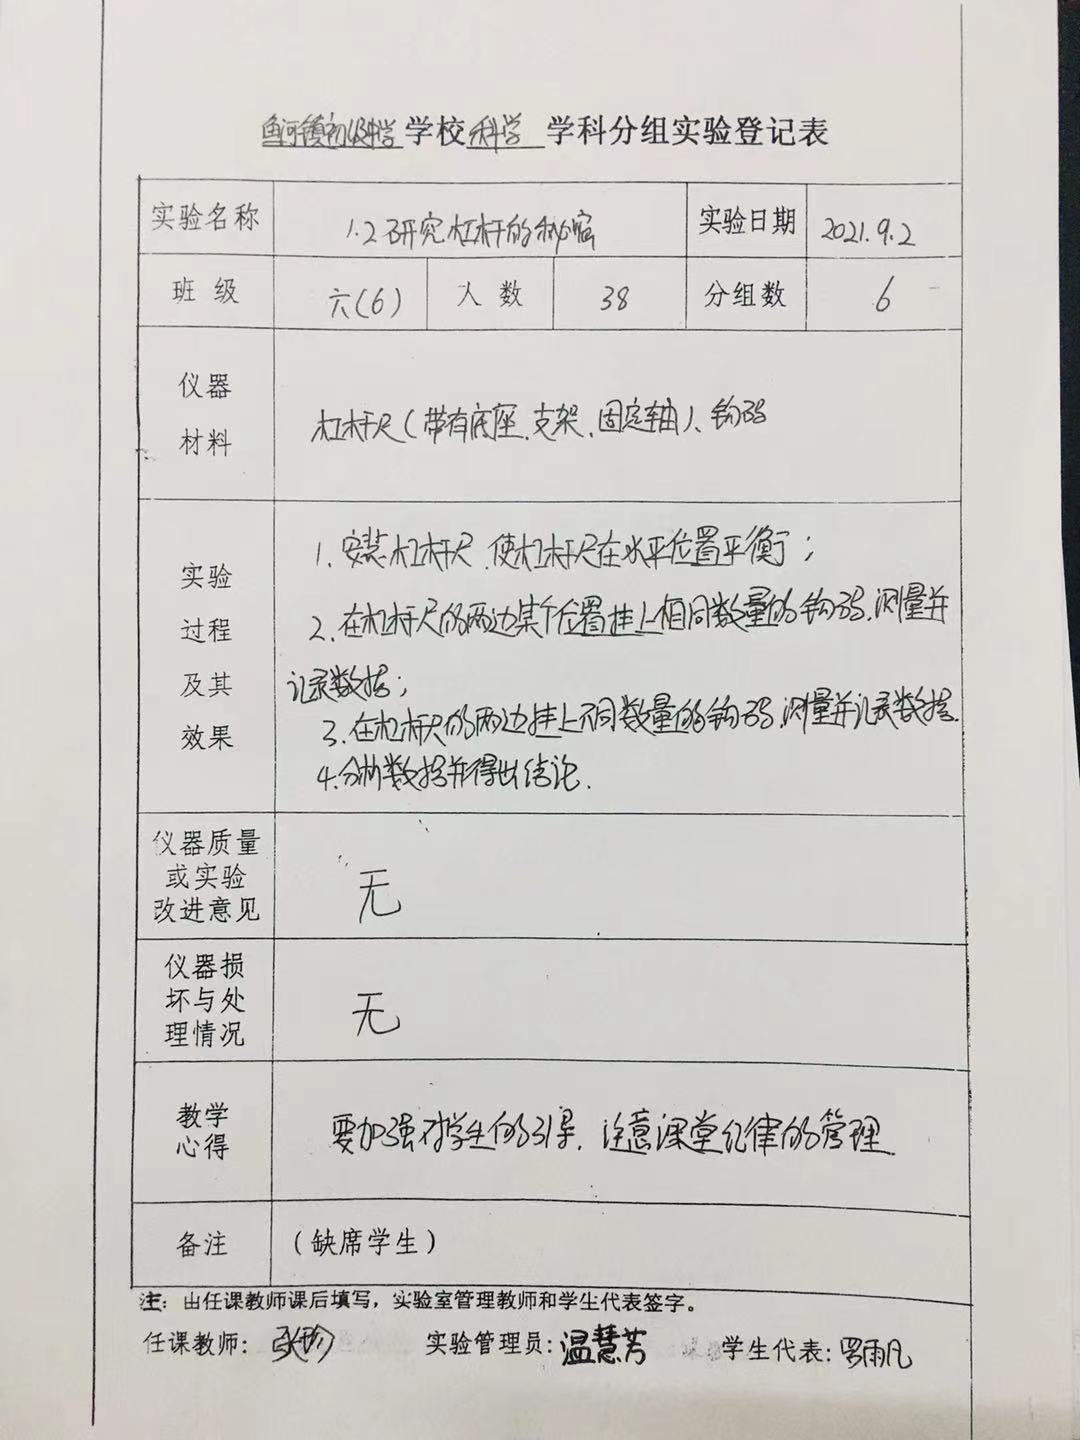 鱼河镇初级中学学校科学 学科分组实验登记表
实验名称 1.2研究杠杆的秘密 实验日期 2021.9.2
班 级 六(6) 人 数 38 分组数 6
仪器
材料
杠杆尺(带有底座、支架、固定轴)、钩码
实验
过程
及其
效果
1.安装杠杆尺,使杠杆尺在水平位置平衡;
2.在杠杆尺的两边某个位置挂上相同数量的钩码,测量并
记录数据;
3.在杠杆尺的两边挂上不同数量的钩码,测量并记录数据.
4.分析数据并得出结论.
仪器质量
或实验
改进意见
无
仪器损
坏与处
理情况
无
教学
心得
要加强对学生的引导,注意课堂纪律的管理
备注 (缺席学生)
注:由任课教师课后填写,实验室管理教师和学生代表签字。
任课教师:张珍 实验管理员:温慧芳 学生代表:罗雨凡